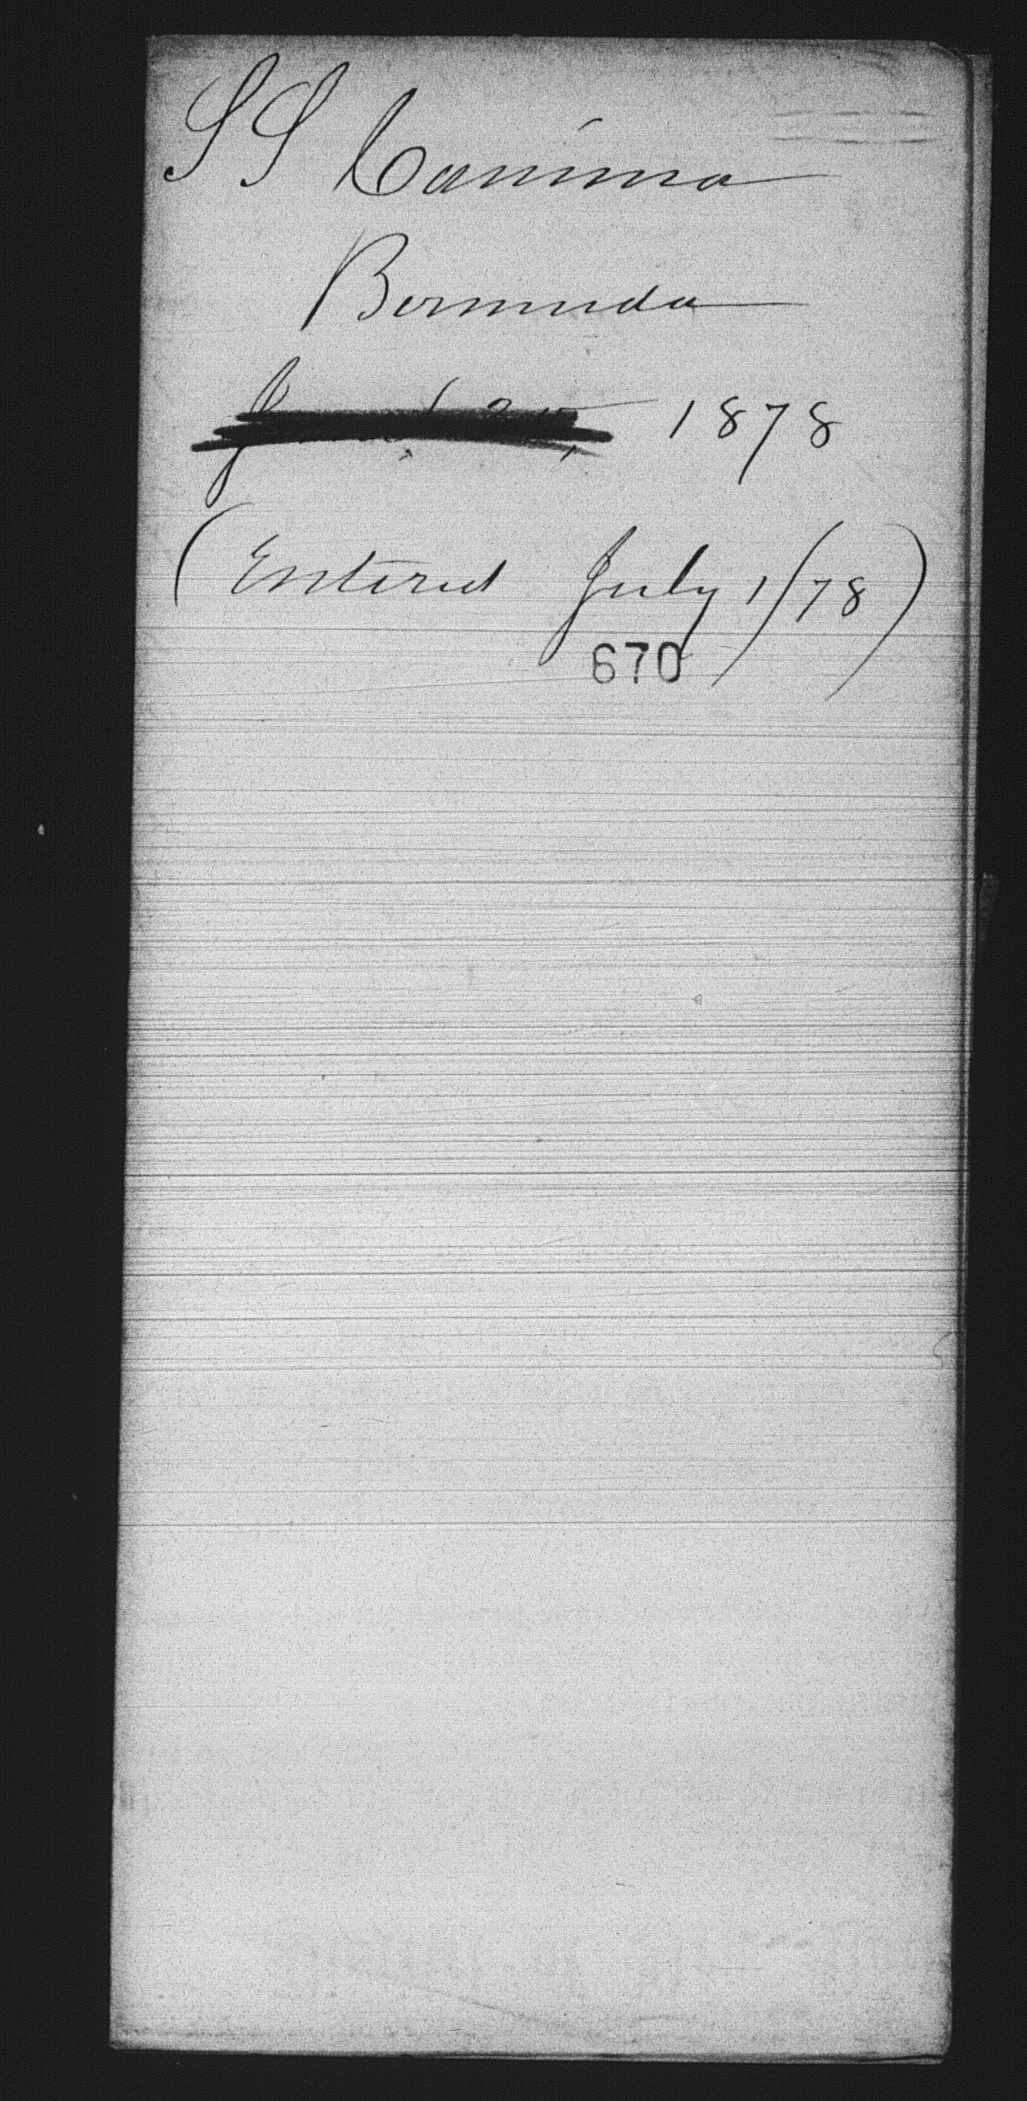 SS Canima
Bermuda
1878
(Entered July 1/78)
670